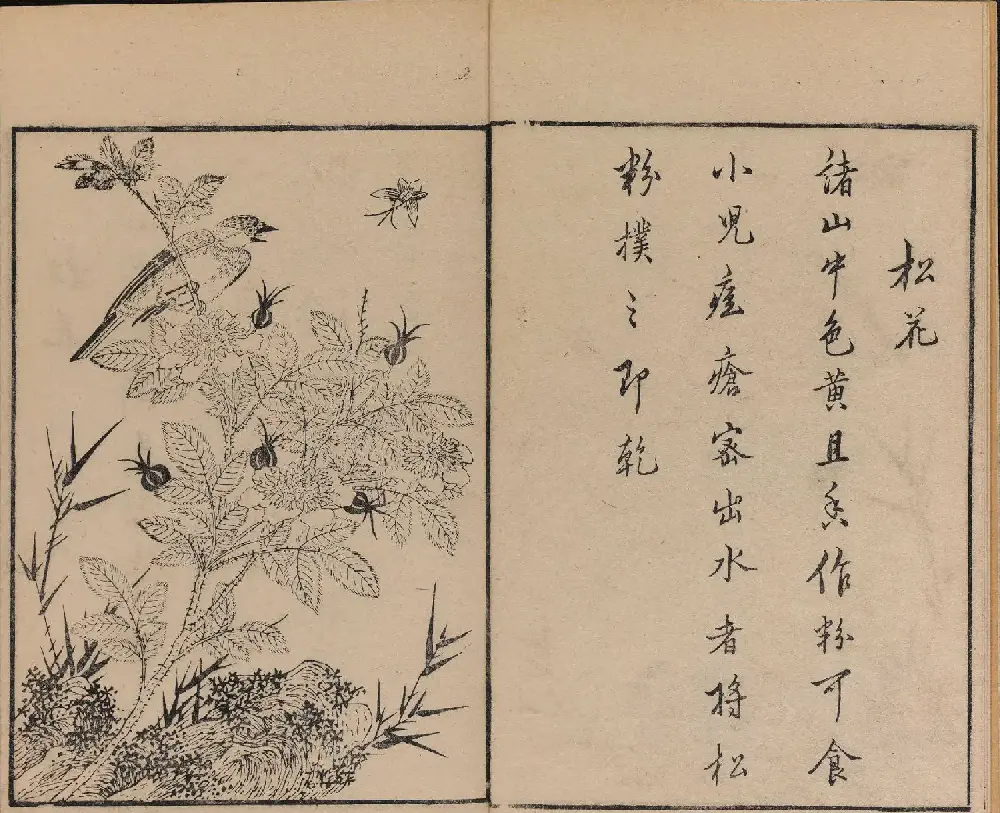 松花
诸山中色黄且香作粉可食
小児痘瘡密出水者将松
粉撲〻即乾